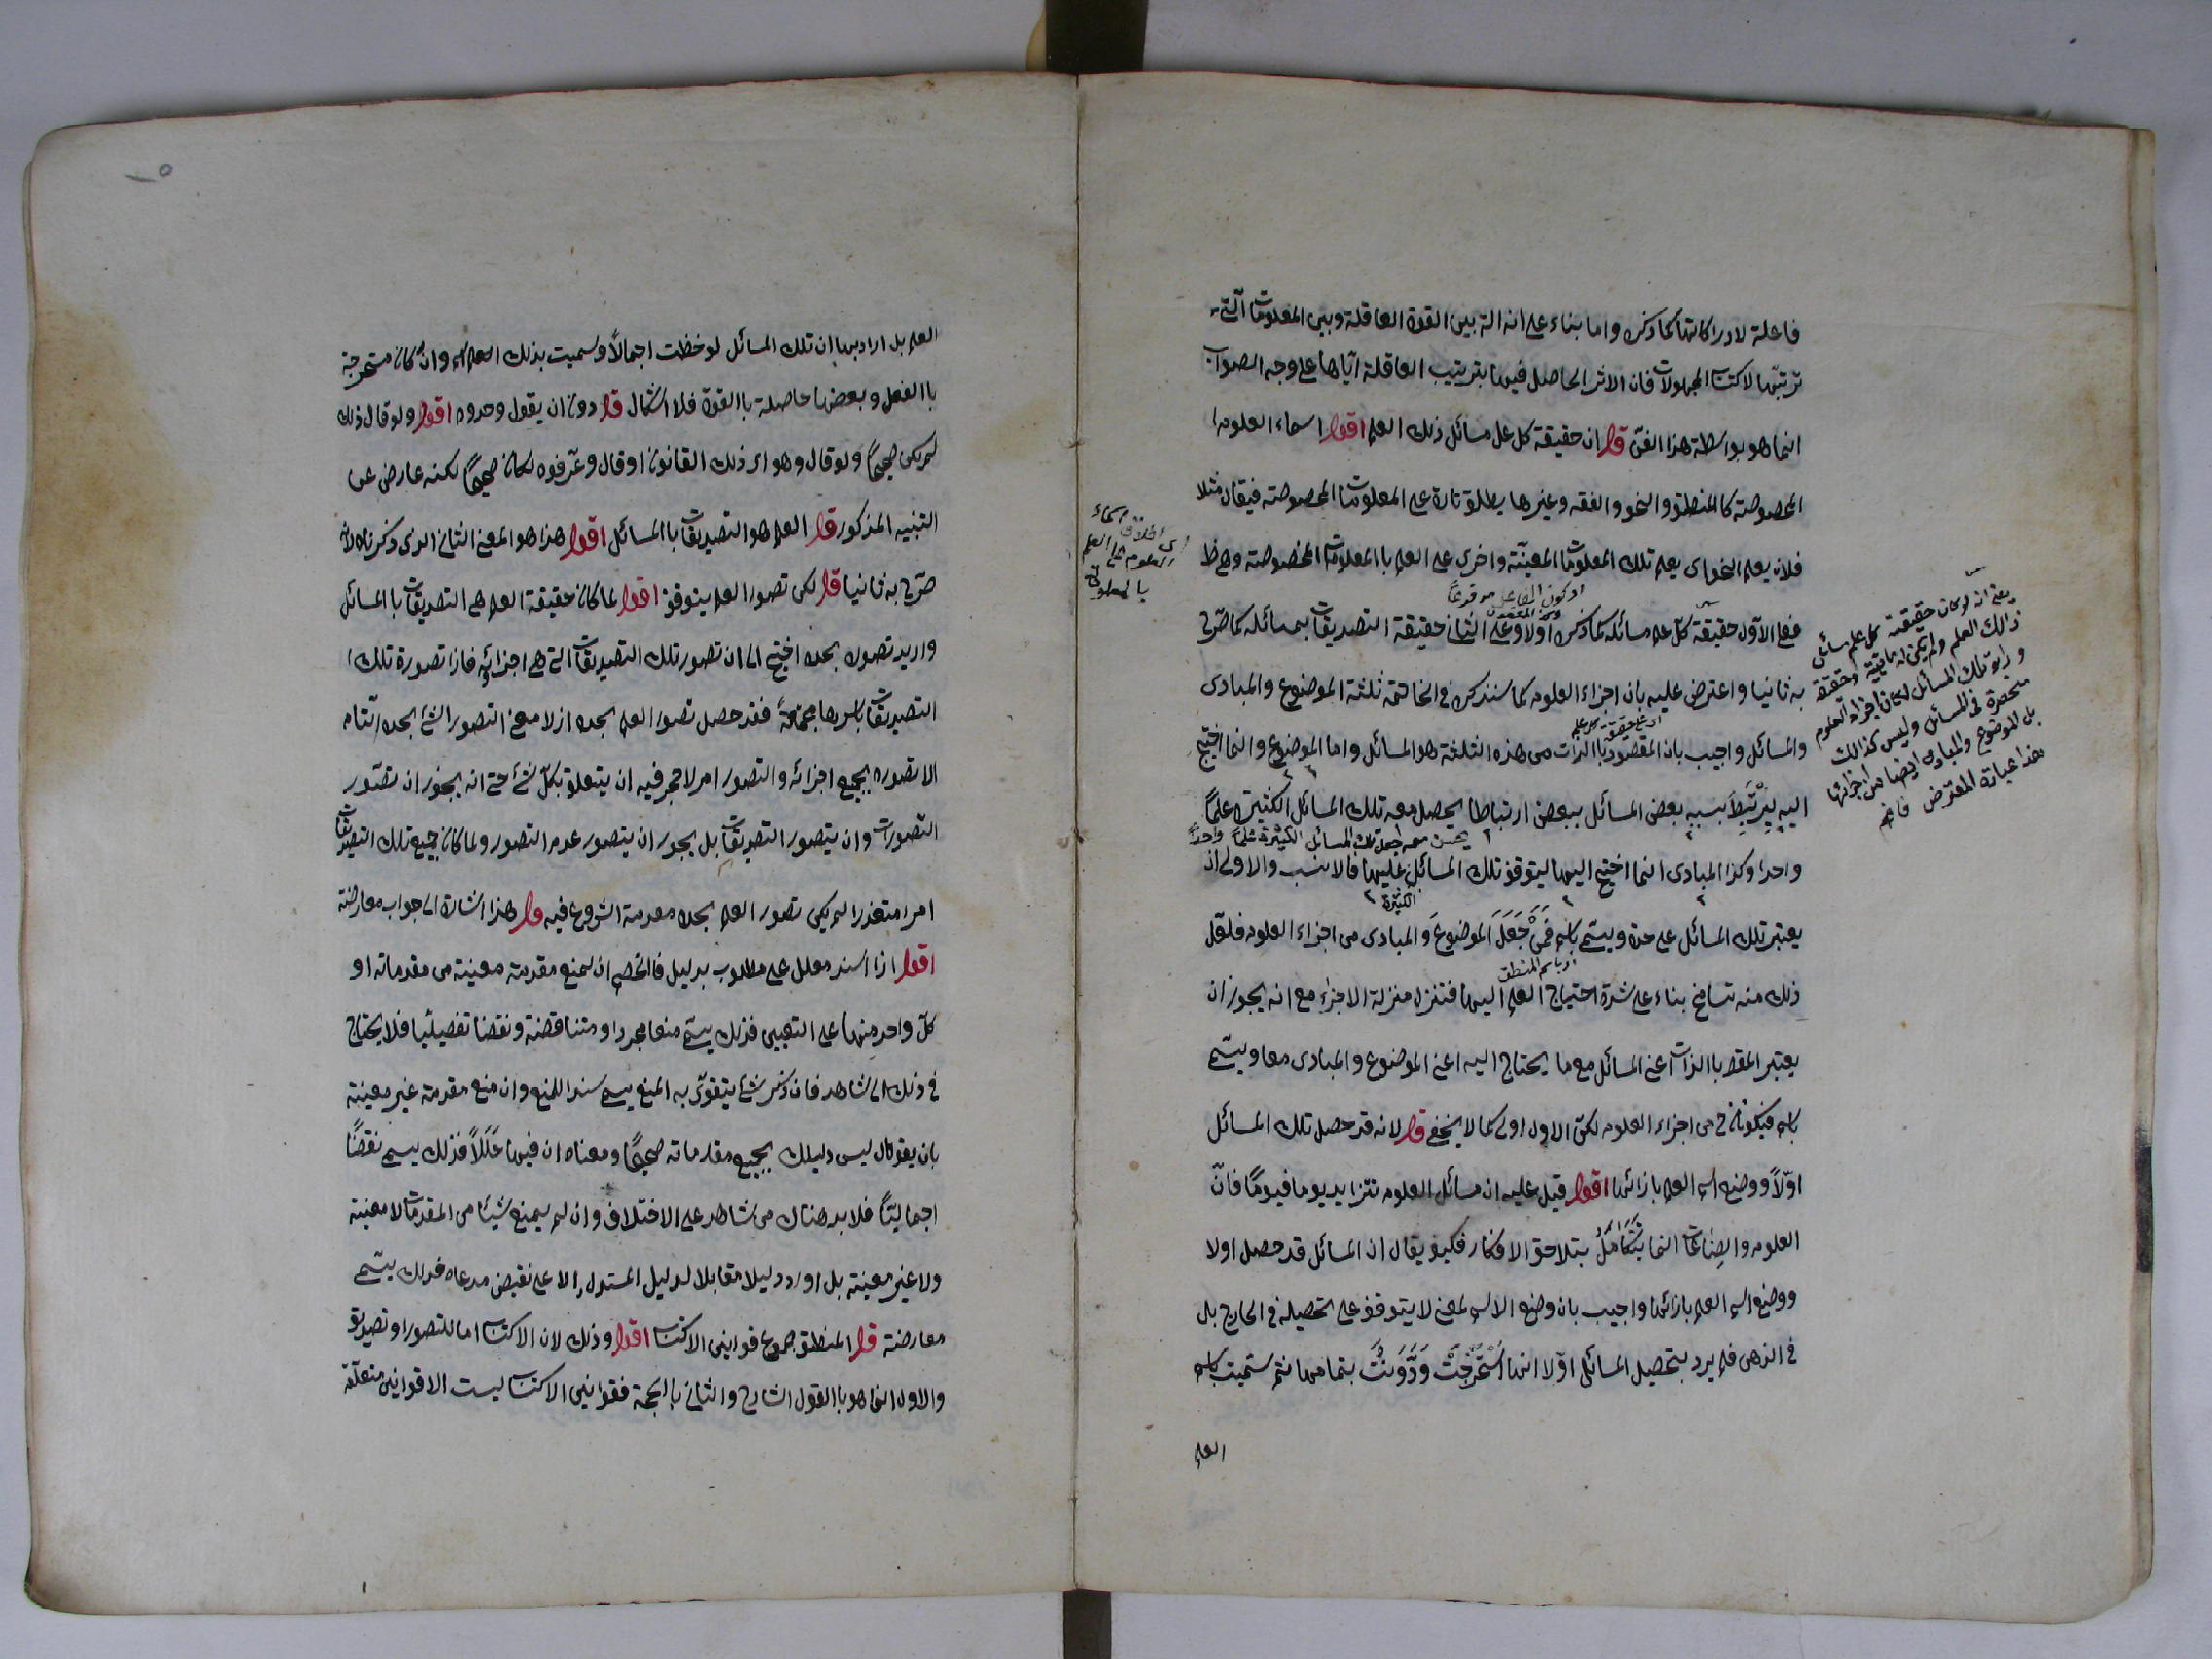 فاعلة لادراكاتها كما ذكره واما بناء على انه الة بين القوة العاقلة وبين المعلومات التي
ترتبها لاكتساب المجهولات فان الاثر الحاصل فيها بترتيب العاقلة اياها على وجه الصواب
انما هو بواسطة هذا الفن قال ان حقيقة كل علم مسائل ذلك العلم اقول اسماء العلوم
المخصوصة كالمنطق والنحو والفقه وغيرها يطلق تارة على المعلومات المخصوصة فيقال مثلا
فلان يعلم النحو اى يعلم تلك المعلومات المعينة واخرى على العلم باالمعلومات المخصوصة وهو ظ
اى اطلاق اسماء
العلوم على العلم
بالمعلومات
فعلى الاول حقيقة كل علم مسائله كما ذكره اولا وعلى الثانى حقيقة التصديقات بمسائله كما صرح
به ثانيا واعترض عليه بان اجزاء العلوم كما سنذكره فى الخاتمة ثلثة الموضوع والمبادى
والمسائل واجيب بان المقصود باالذات من هذه الثلثة هو المسائل واما الموضوع وانما احتيج
اى على حقيقة كل علم
اليه يرتبط بسببه بعض المسائل ببعض ارتباطا يحصل معه تلك المسائل الكثيرة علماً
يحسن معه جعل تلك المسائل الكثيرة علماً واحداً
واحدا وكذا المبادى انما احتيج اليها ليتوقف تلك المسائل عليها فالانسب والاولى ان
الكثيرة
يعتبر تلك المسائل على حدة ويسمى باسم فَمَنْ جَعَلَ الموضوعَ والمبادى من اجزاء العلوم فلعل
اى باسم المنطق
ذلك منه تسامح بناء على شدة احتياج العلم اليها فتنزل منزلة الاجزاء مع انه يجوز ان
يعتبر المقصـ باالذات اعنى المسائل مع ما يحتاج اليه اعنى الموضوع والمبادى معا ويسمى
باسم فيكونان ح من اجزاء العلوم لكن الاول اولى كما لا يخفى قال لانه قد حصل تلك المسائل
اولاً ووضع اسم العلم بازائها اقول قيل عليه ان مسائل العلوم تتزايد يوما فيوماً فانّ
العلوم والصناعات انما يتكامل بتلاحق الافكار فكيف يقال ان المسائل قد حصل اولا
ووضع اسم العلم بازائها واجيب بان وضع الاسم لمعنى لا يتوقف على تحصيله فى الخارج بل
فى الذهن فلم يرد بتحصيل المسائل اولا انها اسْتُخْرِجَتْ وَدُوِّنَتْ بتمامها ثم سميت باسم
العلم
يعنى انه لو كان حقيقة كل علم مسائل
ذالك العلم ولم يكن له ماهية وحقيقة
وراء تلك المسائل لكان اجزاء العلوم
منحصرة فى المسائل وليس كذالك
بل الموضوع والمبادى ايضا من اجزائها
هذا عبارة المعترض فافهم
العلم بل اراد بها ان تلك المسائل لوحظت اجمالاً وسميت بذلك الاسم وان كان مستخرجة
باالفعل وبعضها حاصلة باالقوة فلا اشكال قال دون ان يقول وحدوه اقول ولو قال ذلك
لم يكن صحيحاً ولو قال وهو اى ذلك القانون او قال وعرفوه لكان صحيحاً لكنه عارض عن
التنبيه المذكور قال العلم هو التصديقات باالمسائل اقول هذا هو المعنى الثانى الذى ذكرناه لانه
صرح به ثانيا قال لكن تصور العلم يتوقف اقول لما كان حقيقة العلم هى التصديقات باالمسائل
واريد تصوره بحده احتيج الى ان تصور تلك التصديقات التى هى اجزائه فاذا تصورة تلك ا
التصديقات باسرها مجتمعةً فقد حصل تصور العلم بحده اذ لا معنى التصور الشئ بحده التام
الا تصوره بجميع اجزائه والتصور امر لا حجر فيه ان يتعلق بكل شئ حتى انه يجوز ان تصور
التصورات وان يتصور التصديقات بل يجوز ان يتصور عدم التصور ولما كان جميع تلك التصديقات
امرا متعذرا لم يكن تصور العلم بحده مقدمة الشروع فيه قال هذا اشارة الى جواب معارضة
اقول اذا اسند معلل على مطلوب بدليل فالخصم ان لمنع مقدمة معينة من مقدماته او
كل واحد منها على التعيين فذلك يسمى منعا مجردا ومتناقضة ونقضا تفصيليا فلا يحتاج
فى ذلك الى شاهد فان ذكر شئ يتقوى به المنع يسمى سندا للمنع وان منع مقدمة غير معينة
بان يقول ليس دليلك بجميع مقدماته صحيحاً ومعناه ان فيها خللاً فذلك يسمى نقضاً
اجمالياً فلا بد هناك من شاهد على الاختلاف وان لم يمنع شيئا من المقدمات لا معينة
ولا غير معينة بل اورد دليلا مقابلا لدليل المستدل الا على نقيض مدعاه فذلك يسمى
معارضة قال المنطق مجموع قوانين الاكتساب اقول وذلك لان الاكتساب اما للتصور او تصديق
والاول انما هو باالقول الشارح والثانى باالحجة فقوانين الاكتساب ليست الا قوانين متعلقة